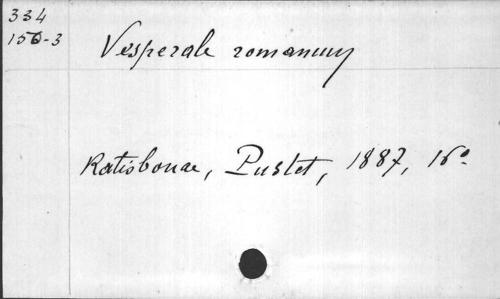 334
156-3
Vesperale romanum
Ratisbonae, Pustet, 1887, 16°.